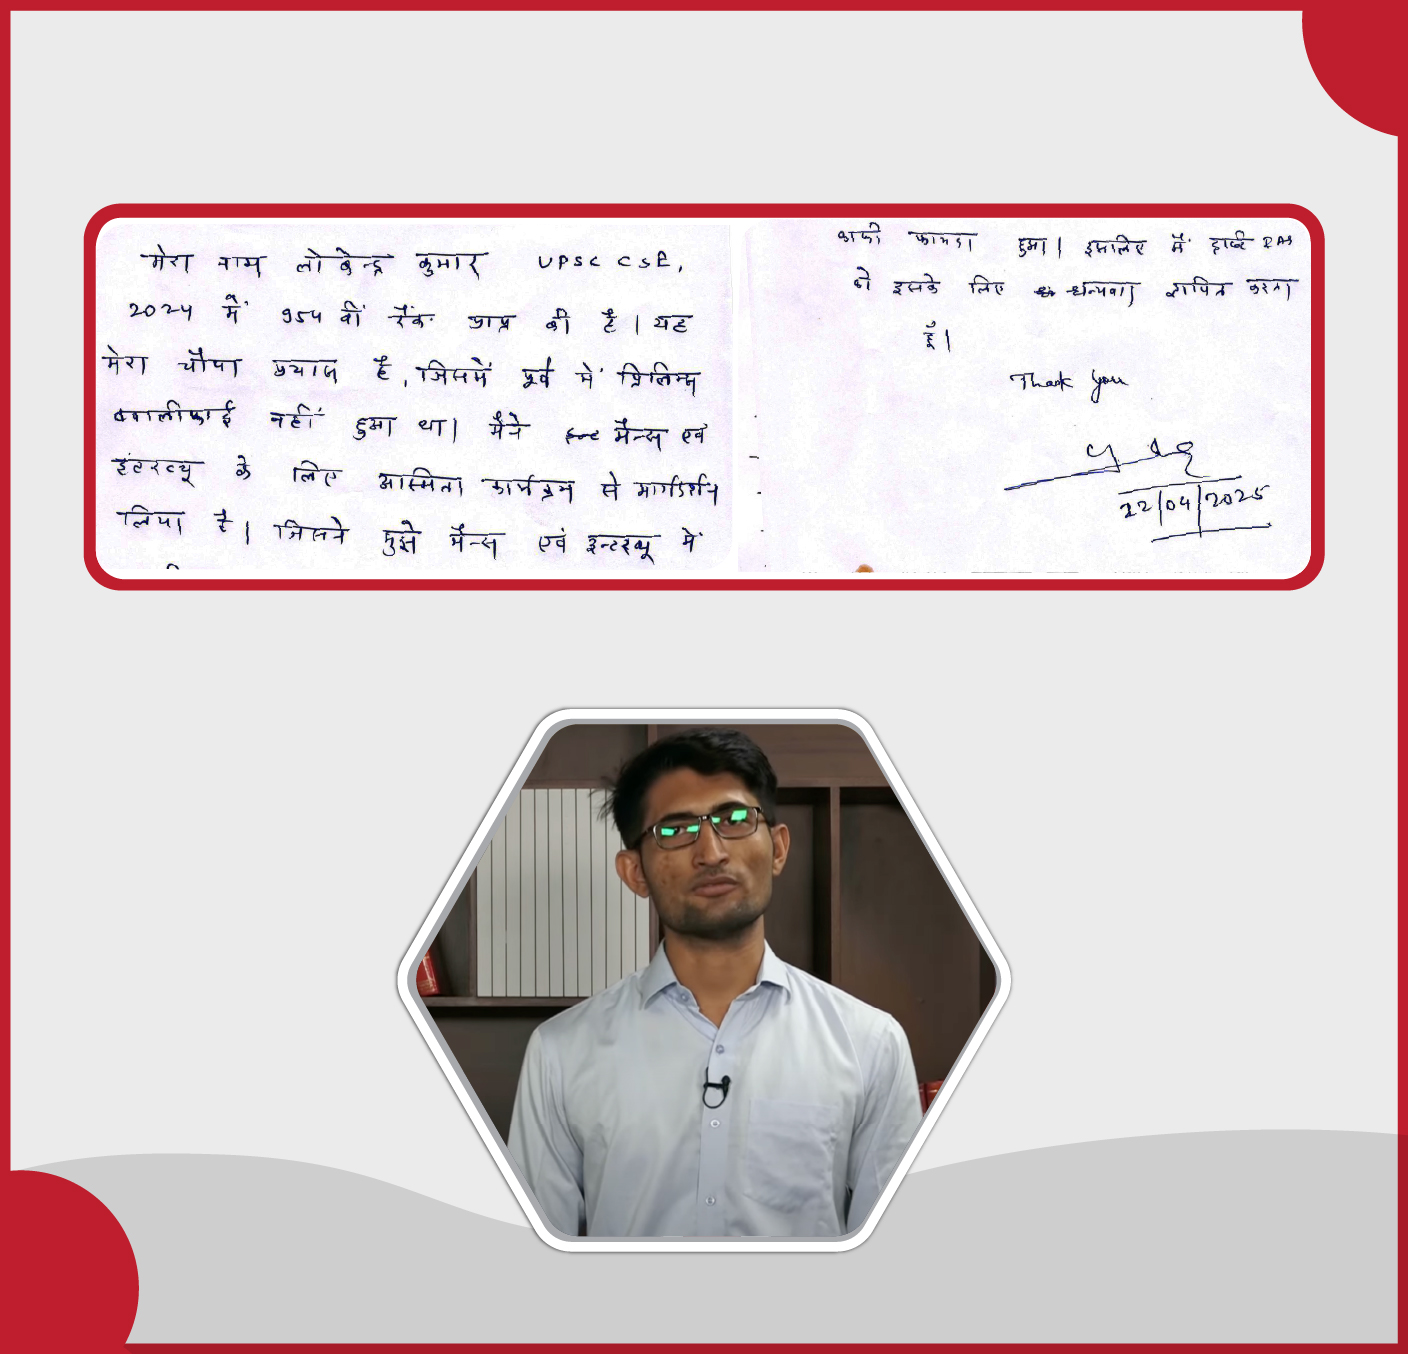 मेरा नाम लोकेन्द्र कुमार UPSC CSE,
2024 में 954 वीं रैंक प्राप्त की है। यह
मेरा चौथा प्रयास है, जिसमें पूर्व में प्रिलिम्स
क्वालीफाई नहीं हुआ था। मैंने मैन्स एवं
इंटरव्यू के लिए अस्मिता कार्यक्रम से मार्गदर्शन
लिया है। जिसने मुझे मैन्स एवं इन्टरव्यू में
काफी फायदा हुआ। इसलिए मैं IAS
को इसके लिए धन्यवाद ज्ञापित करता
हूँ।
Thank you
22/04/2025